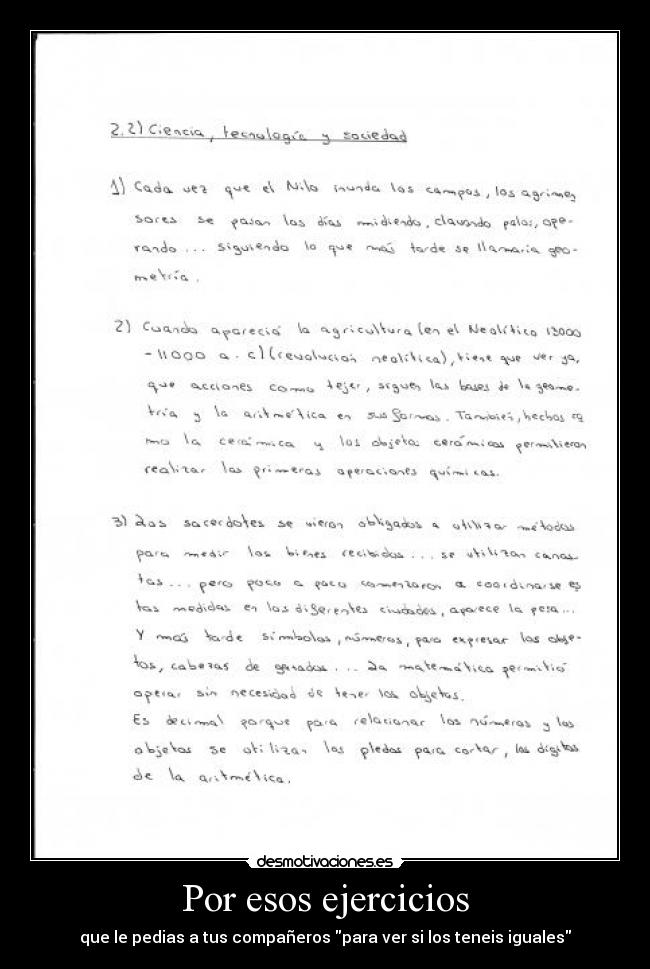 2.2) Ciencia, tecnología y sociedad
1) Cada vez que el Nilo inunda los campos, los agrimen
sores se pasan los días midiendo, clavando palos, ope-
rando... siguiendo lo que más tarde se llamaria geo-
metría.
2) Cuando apareció la agricultura (en el Neolítico 13000
-11000 a.c) (revolución neolítica), tiene que ver ya,
que acciones como tejer, siguen las bases de la geome-
tría y la aritmética en sus formas. Tambien, hechos co
mo la cerámica y los objetos cerámicos permitieron
realizar las primeras operaciones químicas.
3) Los sacerdotes se vieron obligados a utilizar métodos
para medir los bienes recibidos... se utilizan canas
tas... pero poco a poco comenzaron a coordinarse es
tas medidas en las diferentes ciudades, aparece la pesa...
Y más tarde símbolos, números, para expresar los obje-
tos, cabezas de ganados... La matemática permitió
operar sin necesidad de tener los objetos.
Es decimal porque para relacionar los números y los
objetos se utilizan los dedos para contar, los dígitos
de la aritmética.
desmotivaciones.es
Por esos ejercicios
que le pedias a tus compañeros "para ver si los teneis iguales"